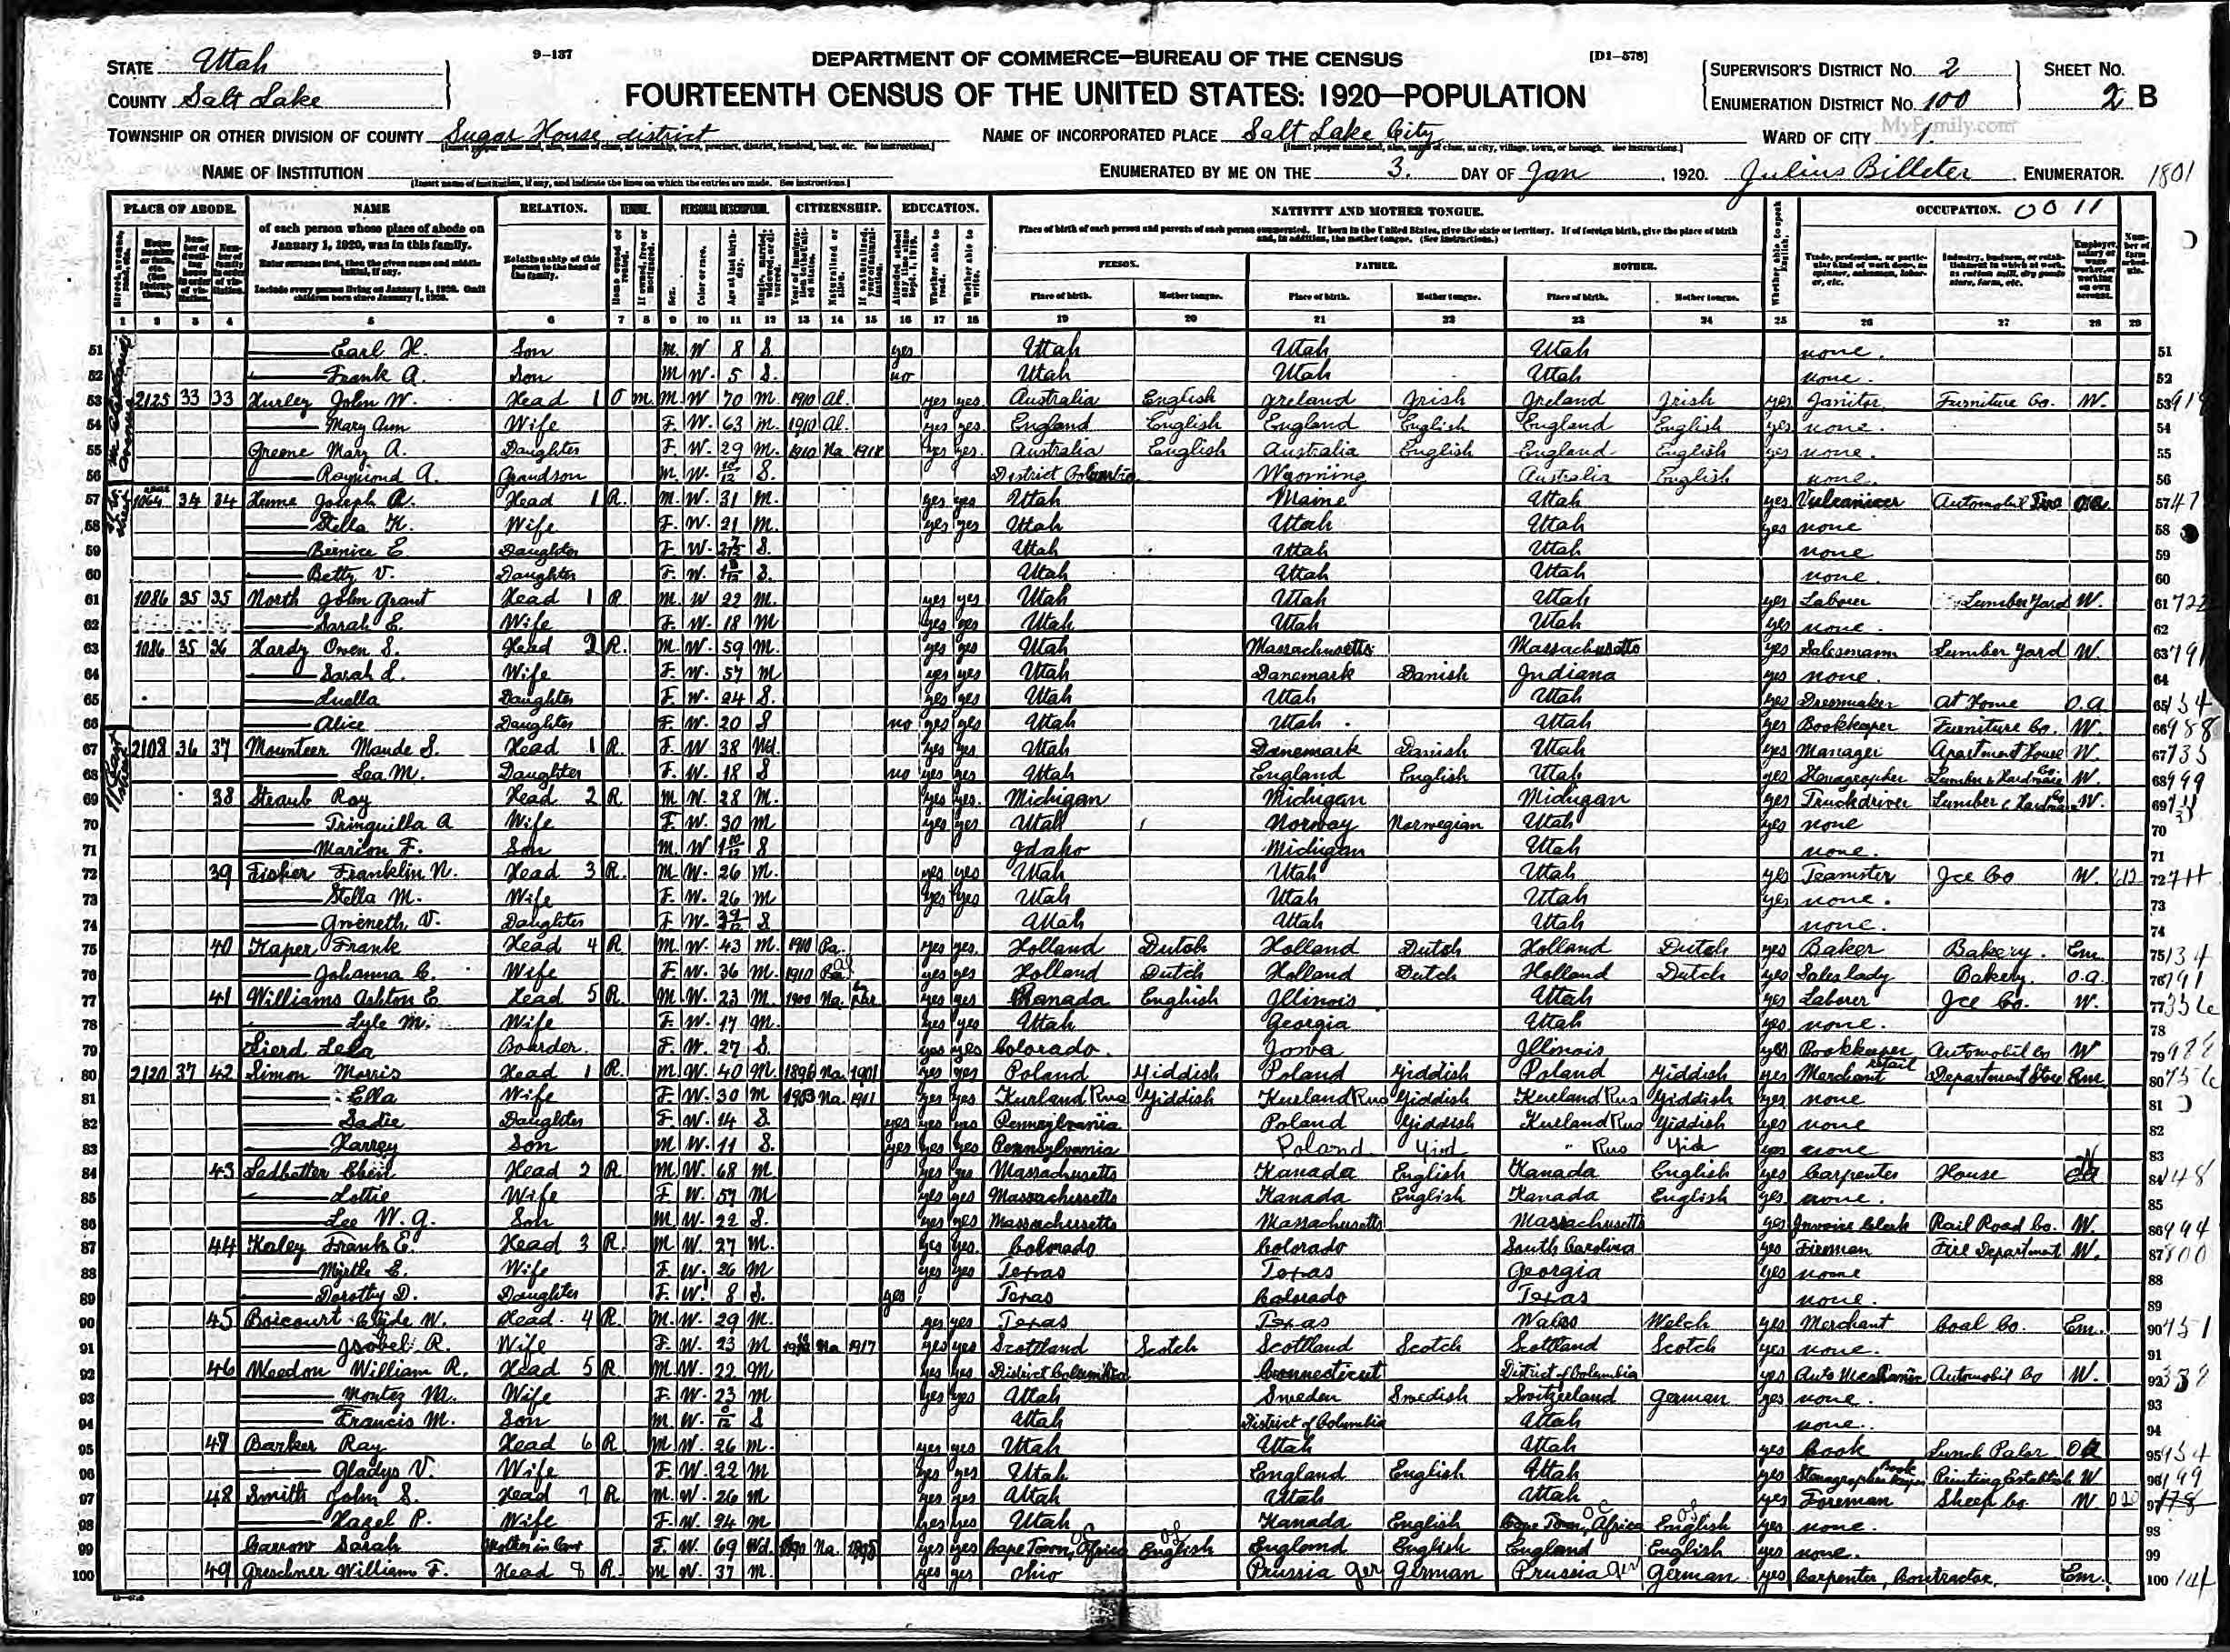 STATE Utah
9-137
DEPARTMENT OF COMMERCE—BUREAU OF THE CENSUS
[D1-578]
SUPERVISOR'S DISTRICT No. 2
SHEET No.
COUNTY Salt Lake
FOURTEENTH CENSUS OF THE UNITED STATES: 1920—POPULATION
ENUMERATION DISTRICT No. 100
2 B
TOWNSHIP OR OTHER DIVISION OF COUNTY Sugar House district
NAME OF INCORPORATED PLACE Salt Lake City
WARD OF CITY 1.
MyFamily.com
NAME OF INSTITUTION
ENUMERATED BY ME ON THE 3. DAY OF Jan, 1920. Julius Billeter ENUMERATOR. 1801
PLACE OF ABODE. NAME RELATION. TENURE. PERSONAL DESCRIPTION. CITIZENSHIP. EDUCATION. NATIVITY AND MOTHER TONGUE. OCCUPATION. 0011
of each person whose place of abode on January 1, 1920, was in this family.
PERSON. FATHER. MOTHER.
Place of birth. Mother tongue. Place of birth. Mother tongue. Place of birth. Mother tongue.
1 2 3 4 5 6 7 8 9 10 11 12 13 14 15 16 17 18 19 20 21 22 23 24 25 26 27 28 29
51 Earl H. Son M W 8 S yes Utah Utah Utah none. 51
52 Frank A. Son M W. 5 S. no Utah Utah Utah none. 52
53 2125 33 33 Hurley John W. Head 1 O M. M. W 70 M. 1910 Al. yes yes. Australia English Ireland Irish Ireland Irish yes Janitor Furniture Co. W. 53
54 Mary Ann Wife F. W. 63 M. 1910 Al. yes yes. England English England English England English yes none. 54
55 Greene Mary A. Daughter F. W. 29 M. 1910 Na 1918 yes yes. Australia English Australia English England English yes none. 55
56 Raymond A. Grandson M. W. 10/12 S. District Columbia Wyoming Australia English none. 56
57 1064 34 34 Hume Joseph A. Head 1 R. M. W. 31 M. yes yes Utah Maine Utah yes Vulcanicer Automobil Tire OA 57
58 Stella K. Wife F. W. 21 M. yes yes Utah Utah Utah yes none 58
59 Bernice E. Daughter F. W. 2 7/12 S. Utah Utah Utah none 59
60 Betty V. Daughter F. W. S. Utah Utah Utah none. 60
61 1086 35 35 North John Grant Head 1 R M. W 22 M. yes yes Utah Utah Utah yes Laborer Lumber Yard W. 61
62 Sarah E. Wife F. W. 18 M yes yes Utah Utah Utah yes none. 62
63 1086 35 36 Hardy Owen S. Head 2 R. M. W. 59 M. yes yes Utah Massachusetts Massachusetts yes Salesmann Lumber Yard W. 63
64 Sarah L. Wife F. W. 57 M yes yes Utah Danemark Danish Indiana yes none. 64
65 Luella Daughter F. W. 24 S. yes yes Utah Utah Utah yes Dressmaker At Home O.A 65
66 Alice Daughter F W. 20 S no yes yes Utah Utah Utah yes Bookkeeper Furniture Co. W. 66
67 2108 36 37 Mounteer Maude S. Head 1 R. F. W 38 Wd. yes yes. Utah Danemark Danish Utah yes Manager Apartment House W. 67
68 Lea M. Daughter F. W. 18 S no yes yes Utah England English Utah yes Stenographer Lumber & Hardware Co. W. 68
69 38 Straub Roy Head 2 R M W. 28 M. yes yes. Michigan Michigan Michigan yes Truckdriver Lumber & Hardware Co W. 69
70 Trinquilla A Wife F. W. 30 M yes yes Utah Norway Norwegian Utah yes none 70
71 Marion F. Son M. W 1 10/12 S Idaho Michigan Utah none. 71
72 39 Fisher Franklin N. Head 3 R. M W. 26 M. yes yes Utah Utah Utah yes Teamster Ice Co W. 72
73 Stella M. Wife F. W. 26 M yes yes Utah Utah Utah yes none. 73
74 Gwineth V. Daughter F W. S Utah Utah Utah none. 74
75 40 Kaper Frank Head 4 R M. W. 43 M. 1910 Pa. yes yes. Holland Dutch Holland Dutch Holland Dutch yes Baker Bakery. Em. 75
76 Johanna C. Wife F. W. 36 M. 1910 Pa yes yes Holland Dutch Holland Dutch Holland Dutch yes Saleslady Bakery. O.A. 76
77 41 Williams Ashton E Head 5 R. M W. 23 M. 1900 Na. yes yes Kanada English Illinois Utah yes Laborer Ice Co. W. 77
78 Lyle M. Wife F. W. 17 M. yes yes Utah Georgia Utah yes none. 78
79 Lierd Lela Boarder F. W. 27 S. yes yes Colorado. Iowa Illinois yes Bookkeeper Automobil Co W 79
80 2120 37 42 Simon Morris Head 1 R. M W. 40 M. 1896 Na. 1901 yes yes Poland Yiddish Poland Yiddish Poland Yiddish yes Merchant retail Department Store Em. 80
81 Ella Wife F. W. 30 M 1903 Na. 1911 yes yes Kurland Rus Yiddish Kurland Rus Yiddish Kurland Rus Yiddish yes none 81
82 Sadie Daughter F. W. 14 S. yes yes yes Pennsylvania Poland Yiddish Kurland Rus Yiddish yes none 82
83 Harrey Son M W. 11 S. yes yes yes Pennsylvania Poland Yid " Rus Yid yes none 83
84 43 Ledbetter Eben Head 2 R M. W. 68 M. yes yes Massachusetts Kanada English Kanada English yes Carpenter House 84
85 Lottie Wife F. W. 57 M yes yes Massachusetts Kanada English Kanada English yes none. 85
86 Lee W. G. Son M. W. 22 S. yes yes Massachusetts Massachusetts Massachusetts yes Invoice Clerk Rail Road Co. W. 86
87 44 Haley Frank E. Head 3 R. M W. 27 M. yes yes. Colorado Colorado South Carolina yes Fireman Fire Department W. 87
88 Myrtle E. Wife F. W. 26 M yes yes Texas Texas Georgia yes none 88
89 Dorothy D. Daughter F. W. 8 S. yes Texas Colorado Texas none. 89
90 45 Boicourt Clide W. Head 4 R. M. W. 29 M. yes yes Texas Texas Wales Welch yes Merchant Coal Co. Em. 90
91 Isobel R. Wife F. W. 23 M Na 1917 yes yes Scottland Scotch Scottland Scotch Scottland Scotch yes none. 91
92 46 Weedon William R. Head 5 R M. W. 22 M yes yes District Columbia Connecticut District of Columbia yes Auto Mechanic Automobil Co W. 92
93 Montez M. Wife F. W. 23 M yes yes Utah Sweden Swedish Switzerland German yes none. 93
94 Francis M. Son M. W. S Utah District of Columbia Utah none. 94
95 47 Barker Ray Head 6 R. M W. 26 M. yes yes Utah Utah Utah yes Cook Lunch Palor OA 95
96 Gladys V. Wife F. W. 22 M yes yes Utah England English Utah yes Stenographer Book Printing Establish W 96
97 48 Smith John S. Head 7 R M. W. 26 M yes yes Utah Utah Utah yes Foreman Sheep Co. W 97
98 Hazel P. Wife F. W. 24 M yes yes Utah Kanada English Cape Town, Africa English yes none. 98
99 Carrow Sarah Mother in law F. W. 69 Wd. 1890 Na. yes yes Cape Town, Africa English England English England English yes none. 99
100 49 Greschner William F. Head 8 R. M W. 37 M. yes yes Ohio Prussia Ger German Prussia Ger German yes Carpenter, Contractor, Em. 100